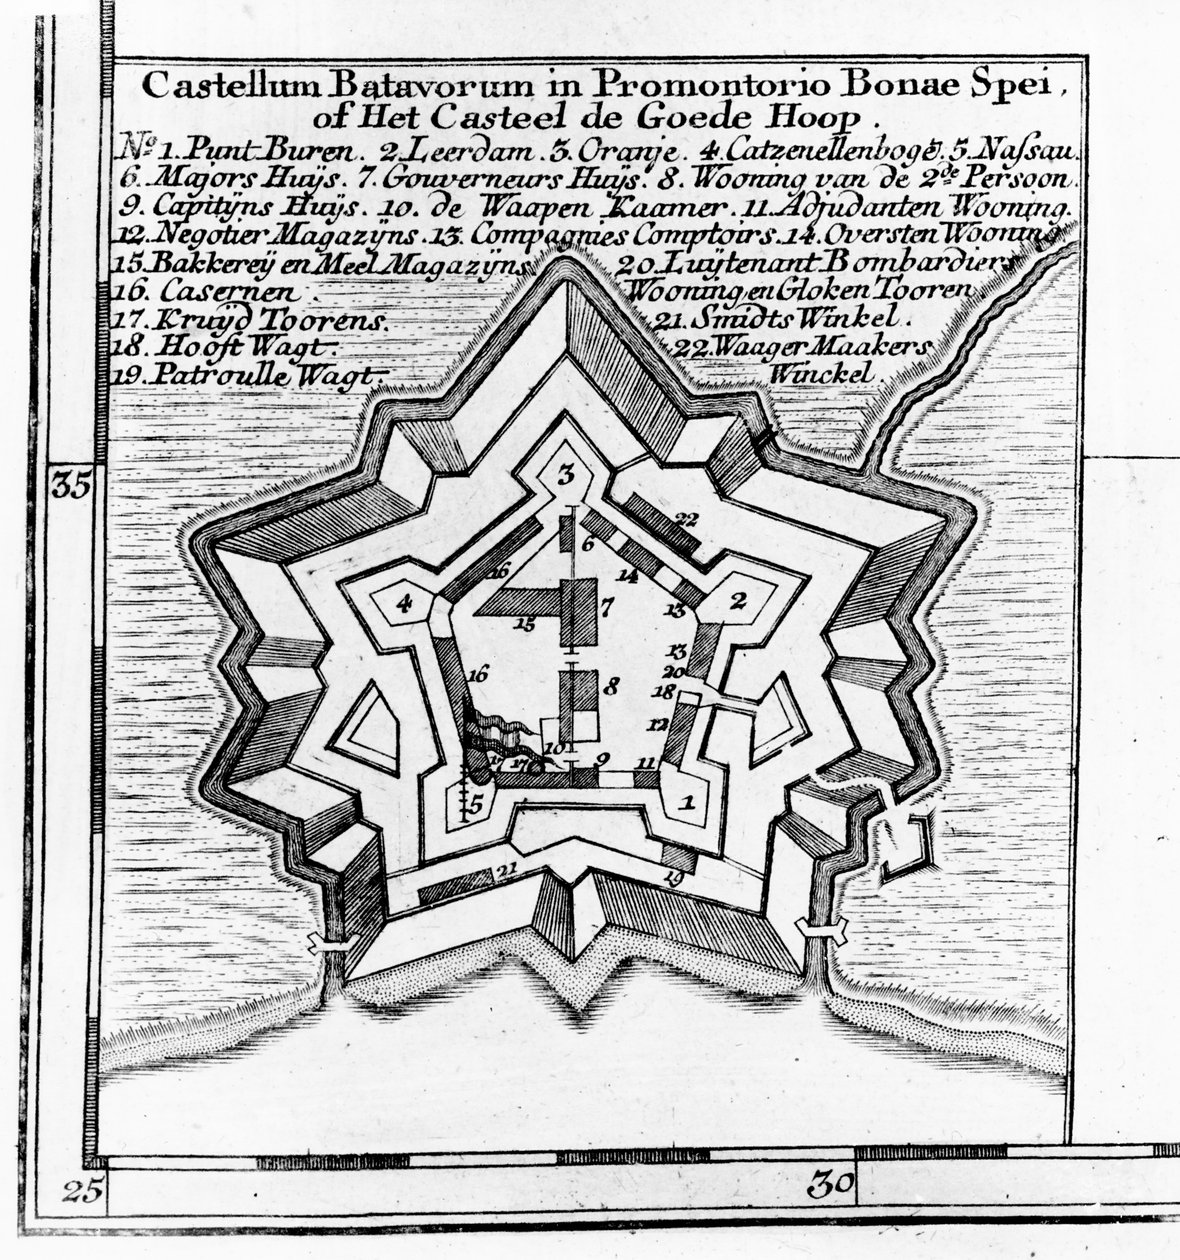 Castellum Batavorum in Promontorio Bonae Spei,
of Het Casteel de Goede Hoop.
No. 1. Punt Buren. 2. Leerdam. 3. Oranje. 4. Catzenellenboge. 5. Naſsau.
6. Majors Huÿs. 7. Gouverneurs Huÿs. 8. Wooning van de 2de Persoon.
9. Capitÿns Huÿs. 10. de Waapen Kaamer. 11. Adjudanten Wooning.
12. Negotier Magazÿns. 13. Compagnies Comptoirs. 14. Oversten Wooning
15. Bakkereÿ en Meel Magazÿns
16. Casernen.
17. Kruÿd Toorens.
18. Hooft Wagt.
19. Patroulle Wagt.
20. Luÿtenant Bombardiers
Wooning en Gloken Tooren
21. Smidts Winkel.
22. Waager Maakers
Winckel.
35
3
22
6
16
14
4
7
13
2
15
13
16
20
8
18
12
10
17
17
9
11
5
1
21
19
25
30